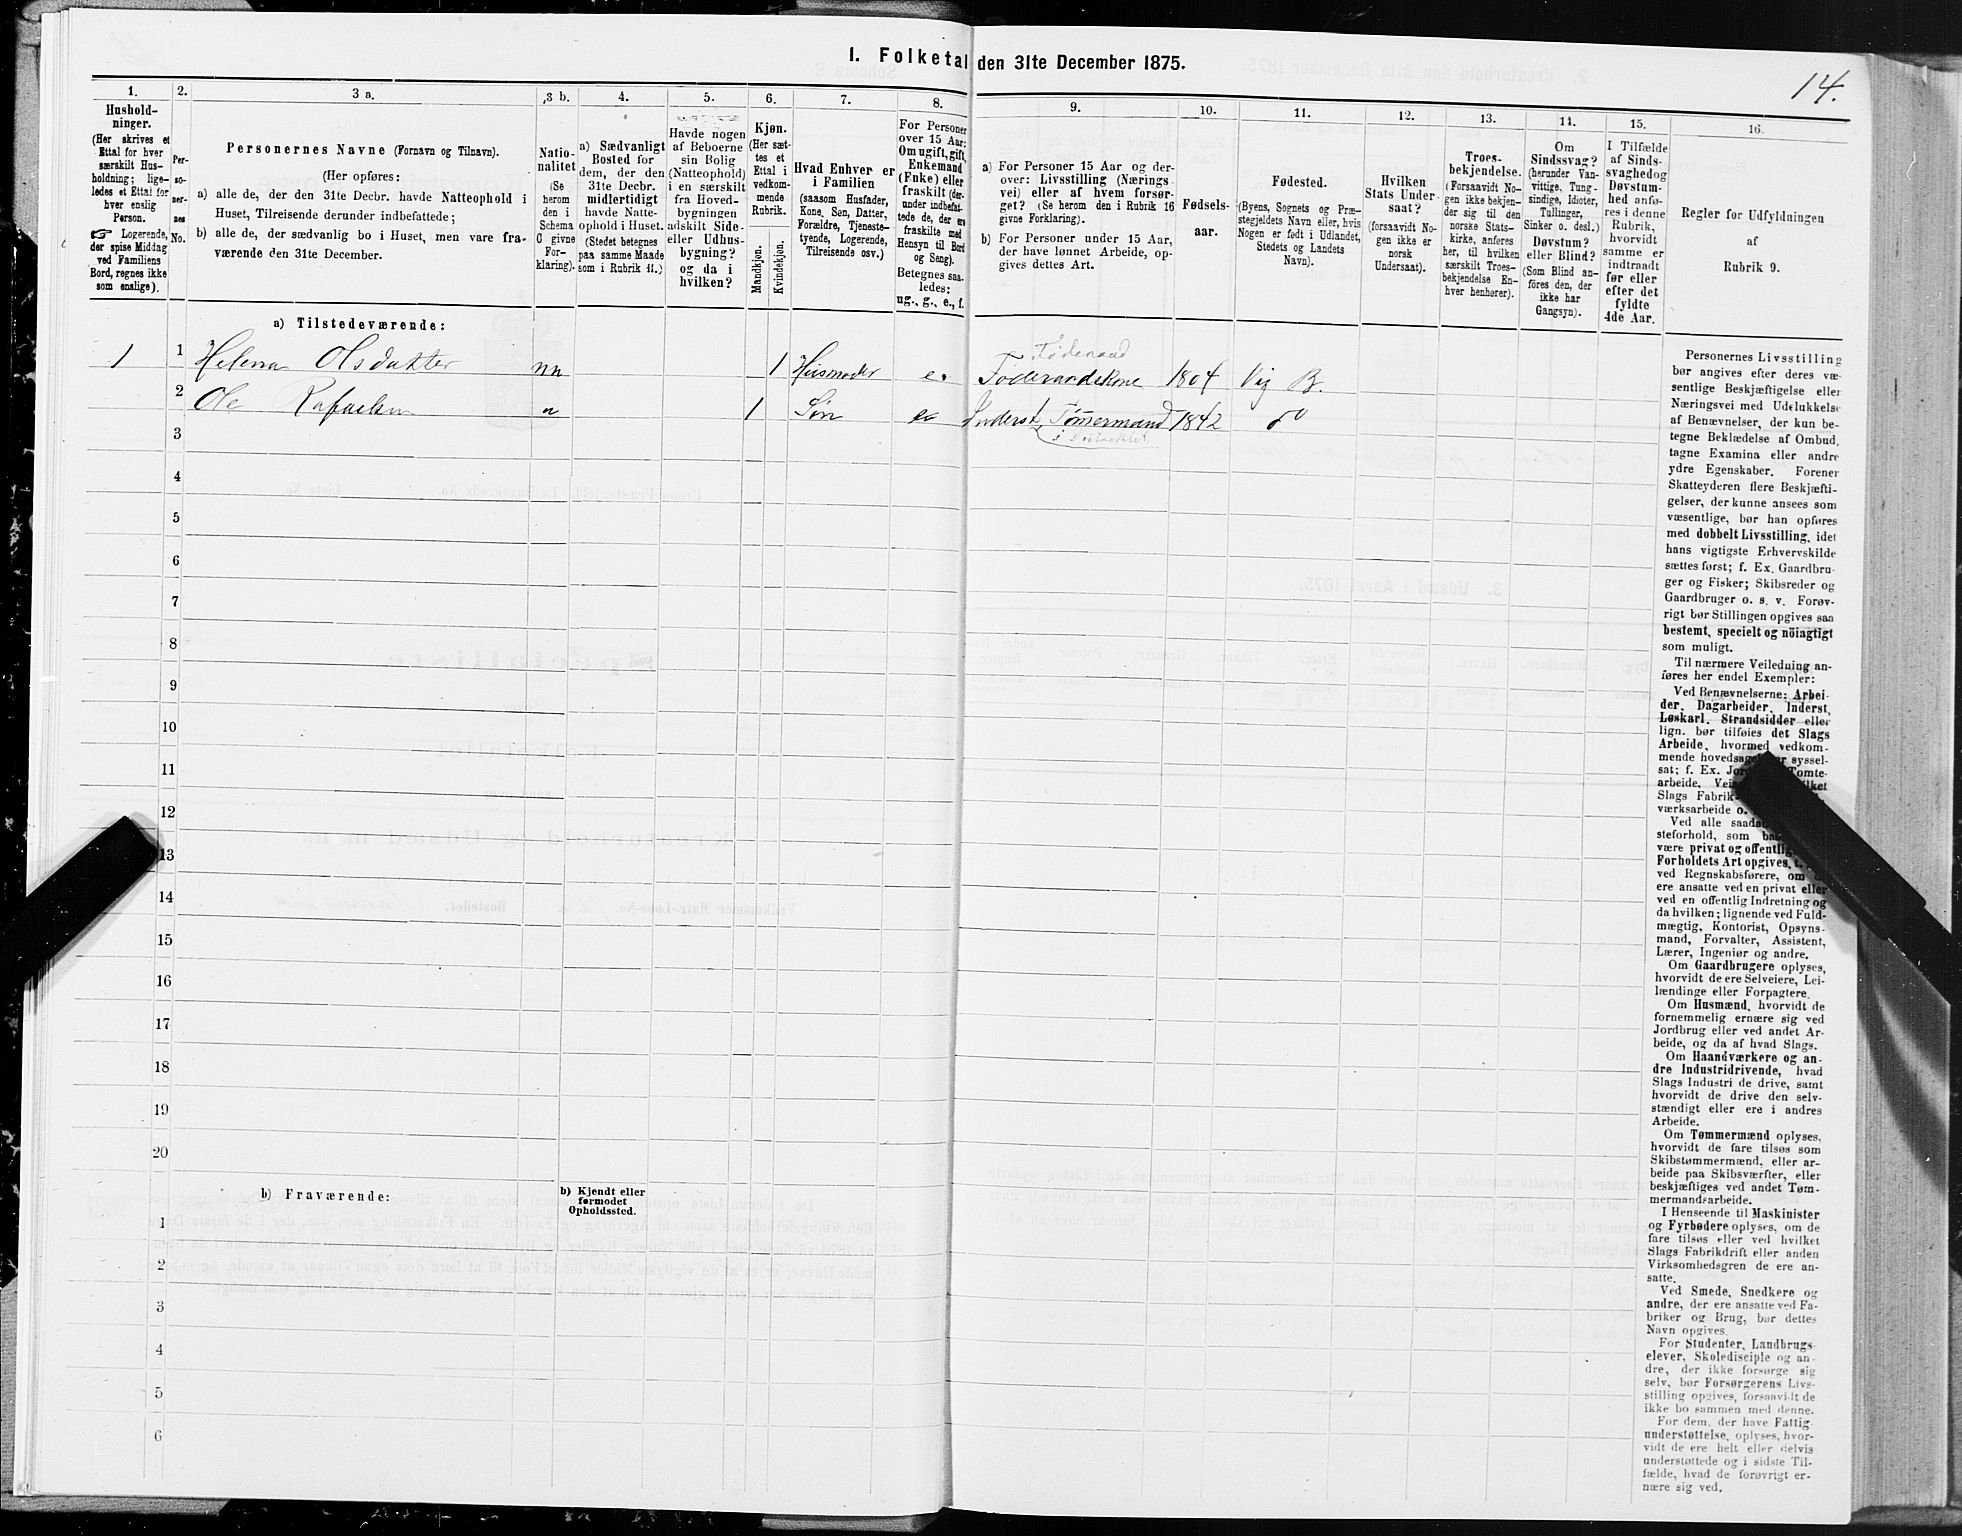 I. Folketal den 31te December 1875.
14.
1.
Hushold-
ninger.
(Her skrives et
Ettal for hver
særskilt Hus-
holdning; lige-
ledes et Ettal for
hver enslig
Person.
☞ Logerende,
der spise Middag
ved Familiens
Bord, regnes ikke
som enslige).
2.
Per-
so-
ner-
nes
No.
3 a.
Personernes Navne (Fornavn og Tilnavn).
(Her opføres:
a) alle de, der den 31te Decbr. havde Natteophold i
Huset, Tilreisende derunder indbefattede;
b) alle de, der sædvanlig bo i Huset, men vare fra-
værende den 31te December.
3 b.
Natio-
nalitet
(Se
herom
den i
Schema
C givne
For-
klaring).
4.
a) Sædvanligt
Bosted for
dem, der den
31te Decbr.
midlertidigt
havde Natte-
ophold i Huset.
(Stedet betegnes
paa samme Maade
som i Rubrik 11.)
5.
Havde nogen
af Beboerne
sin Bolig
(Natteophold)
i en særskilt
fra Hoved-
bygningen
adskilt Side-
eller Udhus-
bygning?
og da i
hvilken?
6.
Kjøn.
(Her sæt-
tes et
Ettal i
vedkom-
mende
Rubrik.
Mandkjøn.
Kvindekjøn.
7.
Hvad Enhver er
i Familien
(saasom Husfader,
Kone, Søn, Datter,
Forældre, Tjeneste-
tyende, Logerende,
Tilreisende osv.)
8.
For Personer
over 15 Aar:
Om ugift, gift,
Enkemand
(Enke) eller
fraskilt (der-
under indbefat-
tede de, der ere
fraskilte med
Hensyn til Bord
og Seng).
Betegnes saa-
ledes:
ug., g., e., f.
9.
a) For Personer 15 Aar og der-
over: Livsstilling (Nærings-
vei) eller af hvem forsør-
get? (Se herom den i Rubrik 16
givne Forklaring).
b) For Personer under 15 Aar,
der have lønnet Arbeide, op-
gives dettes Art.
10.
Fødsels-
aar.
11.
Fødested.
(Byens, Sognets og Præ-
stegjeldets Navn eller, hvis
Nogen er født i Udlandet,
Stedets og Landets
Navn).
12.
Hvilken
Stats Under-
saat?
(forsaavidt No-
gen ikke er
norsk
Undersaat).
13.
Troes-
bekjendelse.
(Forsaavidt No-
gen ikke bekjen-
der sig til den
norske Stats-
kirke, anføres
her, til hvilken
særskilt Troes-
bekjendelse En-
hver henhører).
14.
Om
Sindssvag?
(herunder Van-
vittige, Tung-
sindige, Idioter,
Tullinger,
Sinker o. desl.)
Døvstum?
eller Blind?
(Som Blind an-
føres den, der
ikke har
Gangsyn).
15.
I Tilfælde
af Sinds-
svaghed og
Døvstum-
hed anfø-
res i denne
Rubrik,
hvorvidt
samme er
indtraadt
før eller
efter det
fyldte
4de Aar.
16.
Regler for Udfyldningen
af
Rubrik 9.
a) Tilstedeværende:
Føderaad
1 1 Helena Olsdatter nn 1 Husmoder e. Føderaadskone 1804 Vig B.
2 Ole Rafaelsen n 1 Søn Inderst, Tømmermand 1842 do
3
4
5
6
7
8
9
10
11
12
13
14
15
16
17
18
19
20
b) Fraværende:
b) Kjendt eller
formodet
Opholdssted.
1
2
3
4
5
6
Personernes Livsstilling
bør angives efter deres væ-
sentlige Beskjæftigelse eller
Næringsvei med Udelukkelse
af Benævnelser, der kun be-
tegne Beklædelse af Ombud,
tagne Examina eller andre
ydre Egenskaber. Forener
Skatteyderen flere Beskjæfti-
gelser, der kunne ansees som
væsentlige, bør han opføres
med dobbelt Livsstilling, idet
hans vigtigste Erhvervskilde
sættes først; f. Ex. Gaardbru-
ger og Fisker; Skibsreder og
Gaardbruger o. s. v. Forøv-
rigt bør Stillingen opgives saa
bestemt, specielt og nöiagtigt
som muligt.
Til nærmere Veiledning an-
føres her endel Exempler:
Ved Benævnelserne: Arbei-
der, Dagarbeider, Inderst,
Løskarl, Strandsidder eller
lign. bør tilføies det Slags
Arbeide, hvormed vedkom-
mende hovedsage er syssel-
sat; f. Ex. Tomte-
arbeide,
Slags Fabrik
værksarbeide o.
Ved alle
steforhold, som
være privat og offentlig
Forholdets Art opgives,
ved Regnskabsførere, om
ere ansatte ved en privat eller
ved en offentlig Indretning og
da hvilken; lignende ved Fuld-
mægtig, Kontorist, Opsyns-
mand, Forvalter, Assistent,
Lærer, Ingeniør og andre.
Om Gaardbrugere oplyses,
hvorvidt de ere Selveiere, Lei-
lændinge eller Forpagtere.
Om Husmænd, hvorvidt de
fornemmelig ernære sig ved
Jordbrug eller ved andet Ar-
beide, og da af hvad Slags.
Om Haandværkere og an-
dre Industridrivende, hvad
Slags Industri de drive, samt
hvorvidt de drive den selv-
stændigt eller ere i andres
Arbeide.
Om Tømmermænd oplyses,
hvorvidt de fare tilsøs som
Skibstømmermænd, eller ar-
beide paa Skibsværfter, eller
beskjæftiges ved andet Tøm-
mermandsarbeide.
I Henseende til Maskinister
og Fyrbødere oplyses, om de
fare tilsøs eller ved hvilket
Slags Fabrikdrift eller anden
Virksomhedsgren de ere an-
satte.
Ved Smede, Snedkere og
andre, der ere ansatte ved Fa-
briker og Brug, bør dettes
Navn opgives.
For Studenter, Landbrugs-
elever, Skoledisciple og an-
dre, der ikke forsørge sig
selv, bør Forsørgerens Livs-
stilling opgives, forsaavidt de
ikke bo sammen med denne.
For dem, der have Fattig-
understøttelse, oplyses, hvor-
vidt de ere helt eller delvis
understøttede og i sidste Til-
fælde, hvad de forøvrigt er-
nære sig ved.